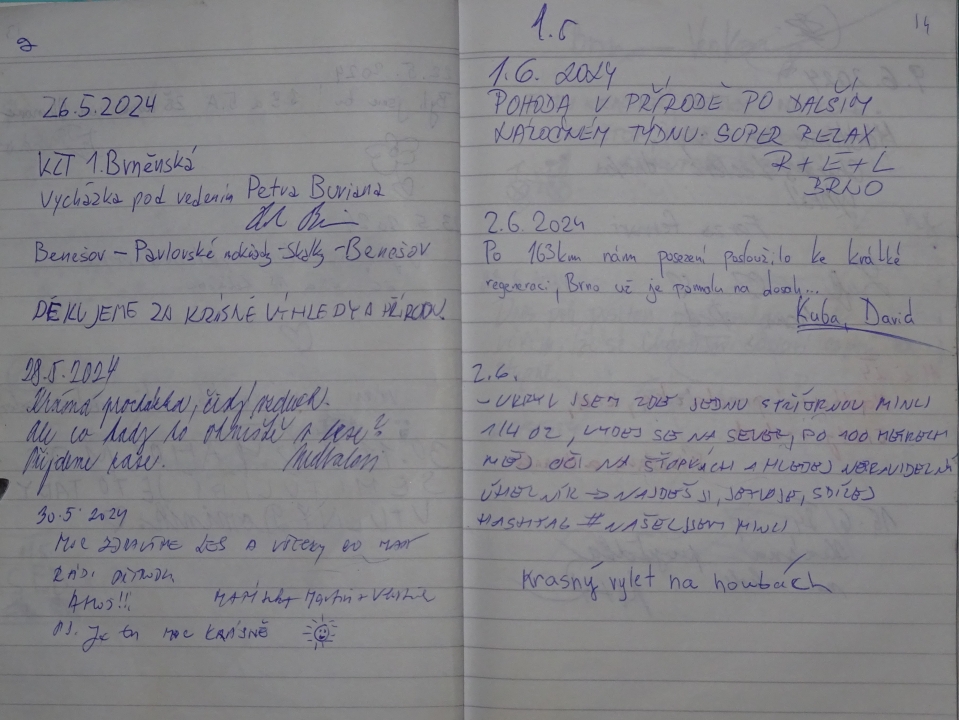 26.5.2024
KČT 1. Brněnská
Vycházka pod vedením Petra Buriana
Benešov – Pavlovské mokřady – Skalky – Benešov
DĚKUJEME ZA KRÁSNÉ VÝHLEDY A PŘÍRODU!
28.5.2024
Krásná procházka, čistý vzduch.
Ale co tady to ohniště v lese?
Přijdeme zase.
30.5 2024
MOC ZDRAVÍME LES A VŠECKY CO MAJÍ
RÁDI PŘÍRODU
AHOJ!!! MAMINKA Martin +
PS. Je tu moc KRÁSNĚ
1.6
14
1.6. 2024
POHODA V PŘÍRODĚ PO DALŠÍM
NÁROČNÉM TÝDNU. SUPER RELAX
R + E + L
BRNO
2.6.2024
Po 163km nám posezení posloužilo ke krátké
regeneraci, Brno už je pomalu na dosah...
Kuba, David
2.6.
– UKRYL JSEM ZDE JEDNU STŘÍBRNOU MINCI
1/4 OZ, VYDEJ SE NA SEVER, PO 100 METRECH
MĚJ OČI NA ŠŤOPKÁCH A HLEDEJ NEPRAVIDELNÍ
ÚHELNÍK → NAJDEŠ JI, JETVOJE, SDÍLEJ
HASHTAG #NAŠELJSEM MINCI
Krasný vylet na houbách